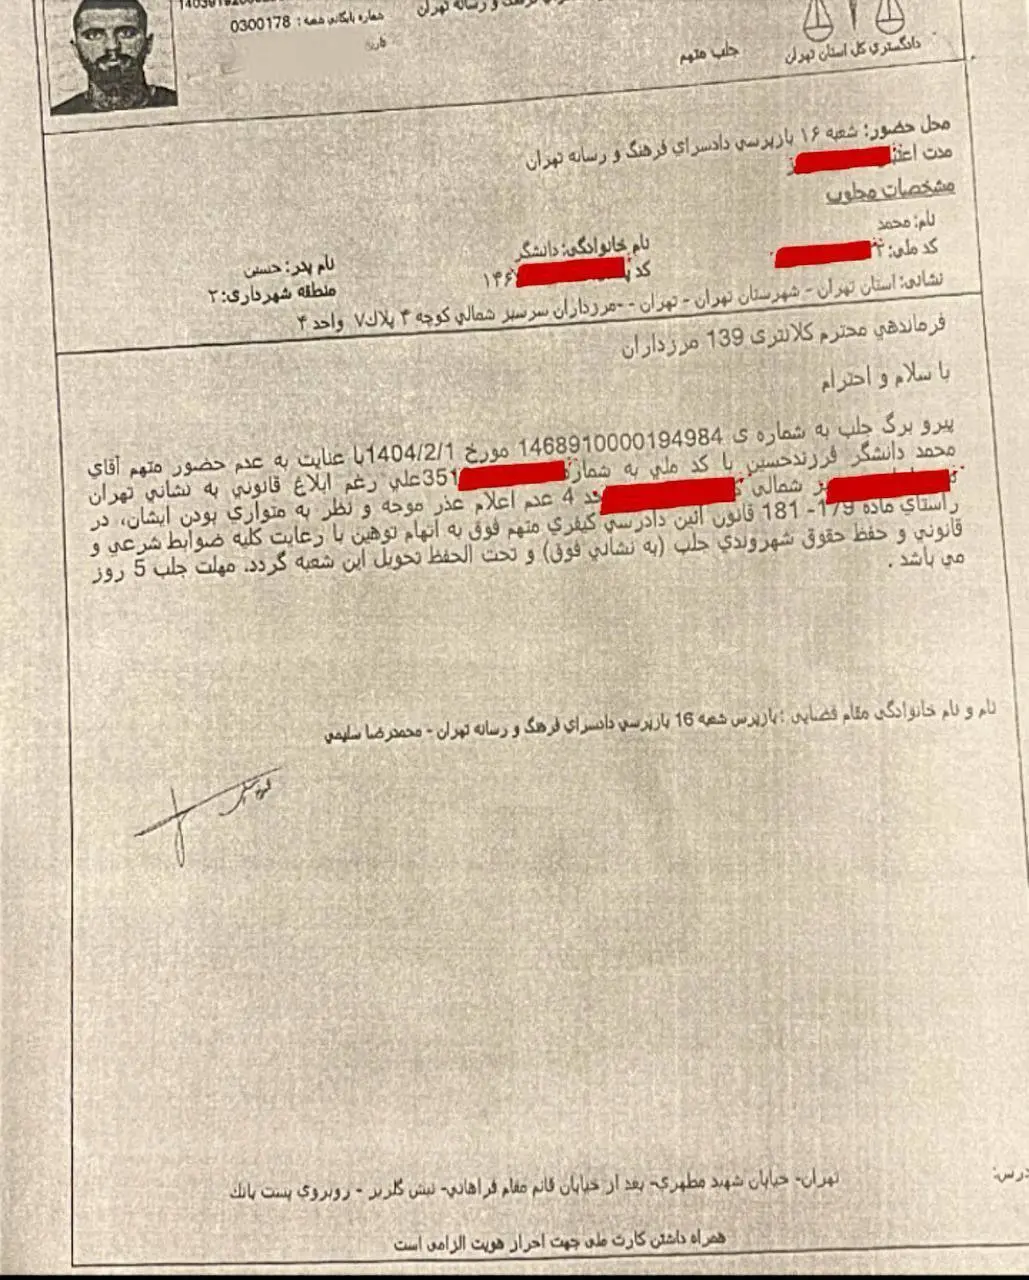 شماره بایگانی شعبه: 0300178
تاریخ
فرهنگ و رسانه تهران
جلب متهم
دادگستری کل استان تهران
محل حضور: شعبه ۱۶ بازپرسي دادسراي فرهنگ و رسانه تهران
مدت
مشخصات مجلوب
نام: محمد
نام خانوادگی: دانشگر
نام پدر: حسین
کد ملی:
کد
۱۴۶
منطقه شهرداری: ۲
نشانی: استان تهران - شهرستان تهران - تهران - -مرزداران سرسبز شمالي کوچه ۴ پلاك۷ واحد ۴
فرماندهي محترم کلانتری 139 مرزداران
با سلام و احترام
پیرو برگ جلب به شماره ی 1468910000194984 مورخ 1404/2/1با عنایت به عدم حضور متهم آقاي
محمد دانشگر فرزندحسین با کد ملي به شماره 351علي رغم ابلاغ قانوني به نشاني تهران
شمالی 4 عدم اعلام عذر موجه و نظر به متواري بودن ایشان، در
راستاي ماده 179- 181 قانون آئین دادرسي کیفري متهم فوق به اتهام توهین با رعایت کلیه ضوابط شرعي و
قانوني و حفظ حقوق شهروندي جلب (به نشاني فوق) و تحت الحفظ تحویل این شعبه گردد. مهلت جلب 5 روز
مي باشد .
نام و نام خانوادگی مقام قضایی : بازپرس شعبه 16 بازپرسي دادسراي فرهنگ و رسانه تهران - محمدرضا سلیمي
تهران- خیابان شهید مطهري- بعد از خیابان قائم مقام فراهاني- نبش گلریز - روبروي پست بانك
همراه داشتن کارت ملی جهت احراز هویت الزامی است